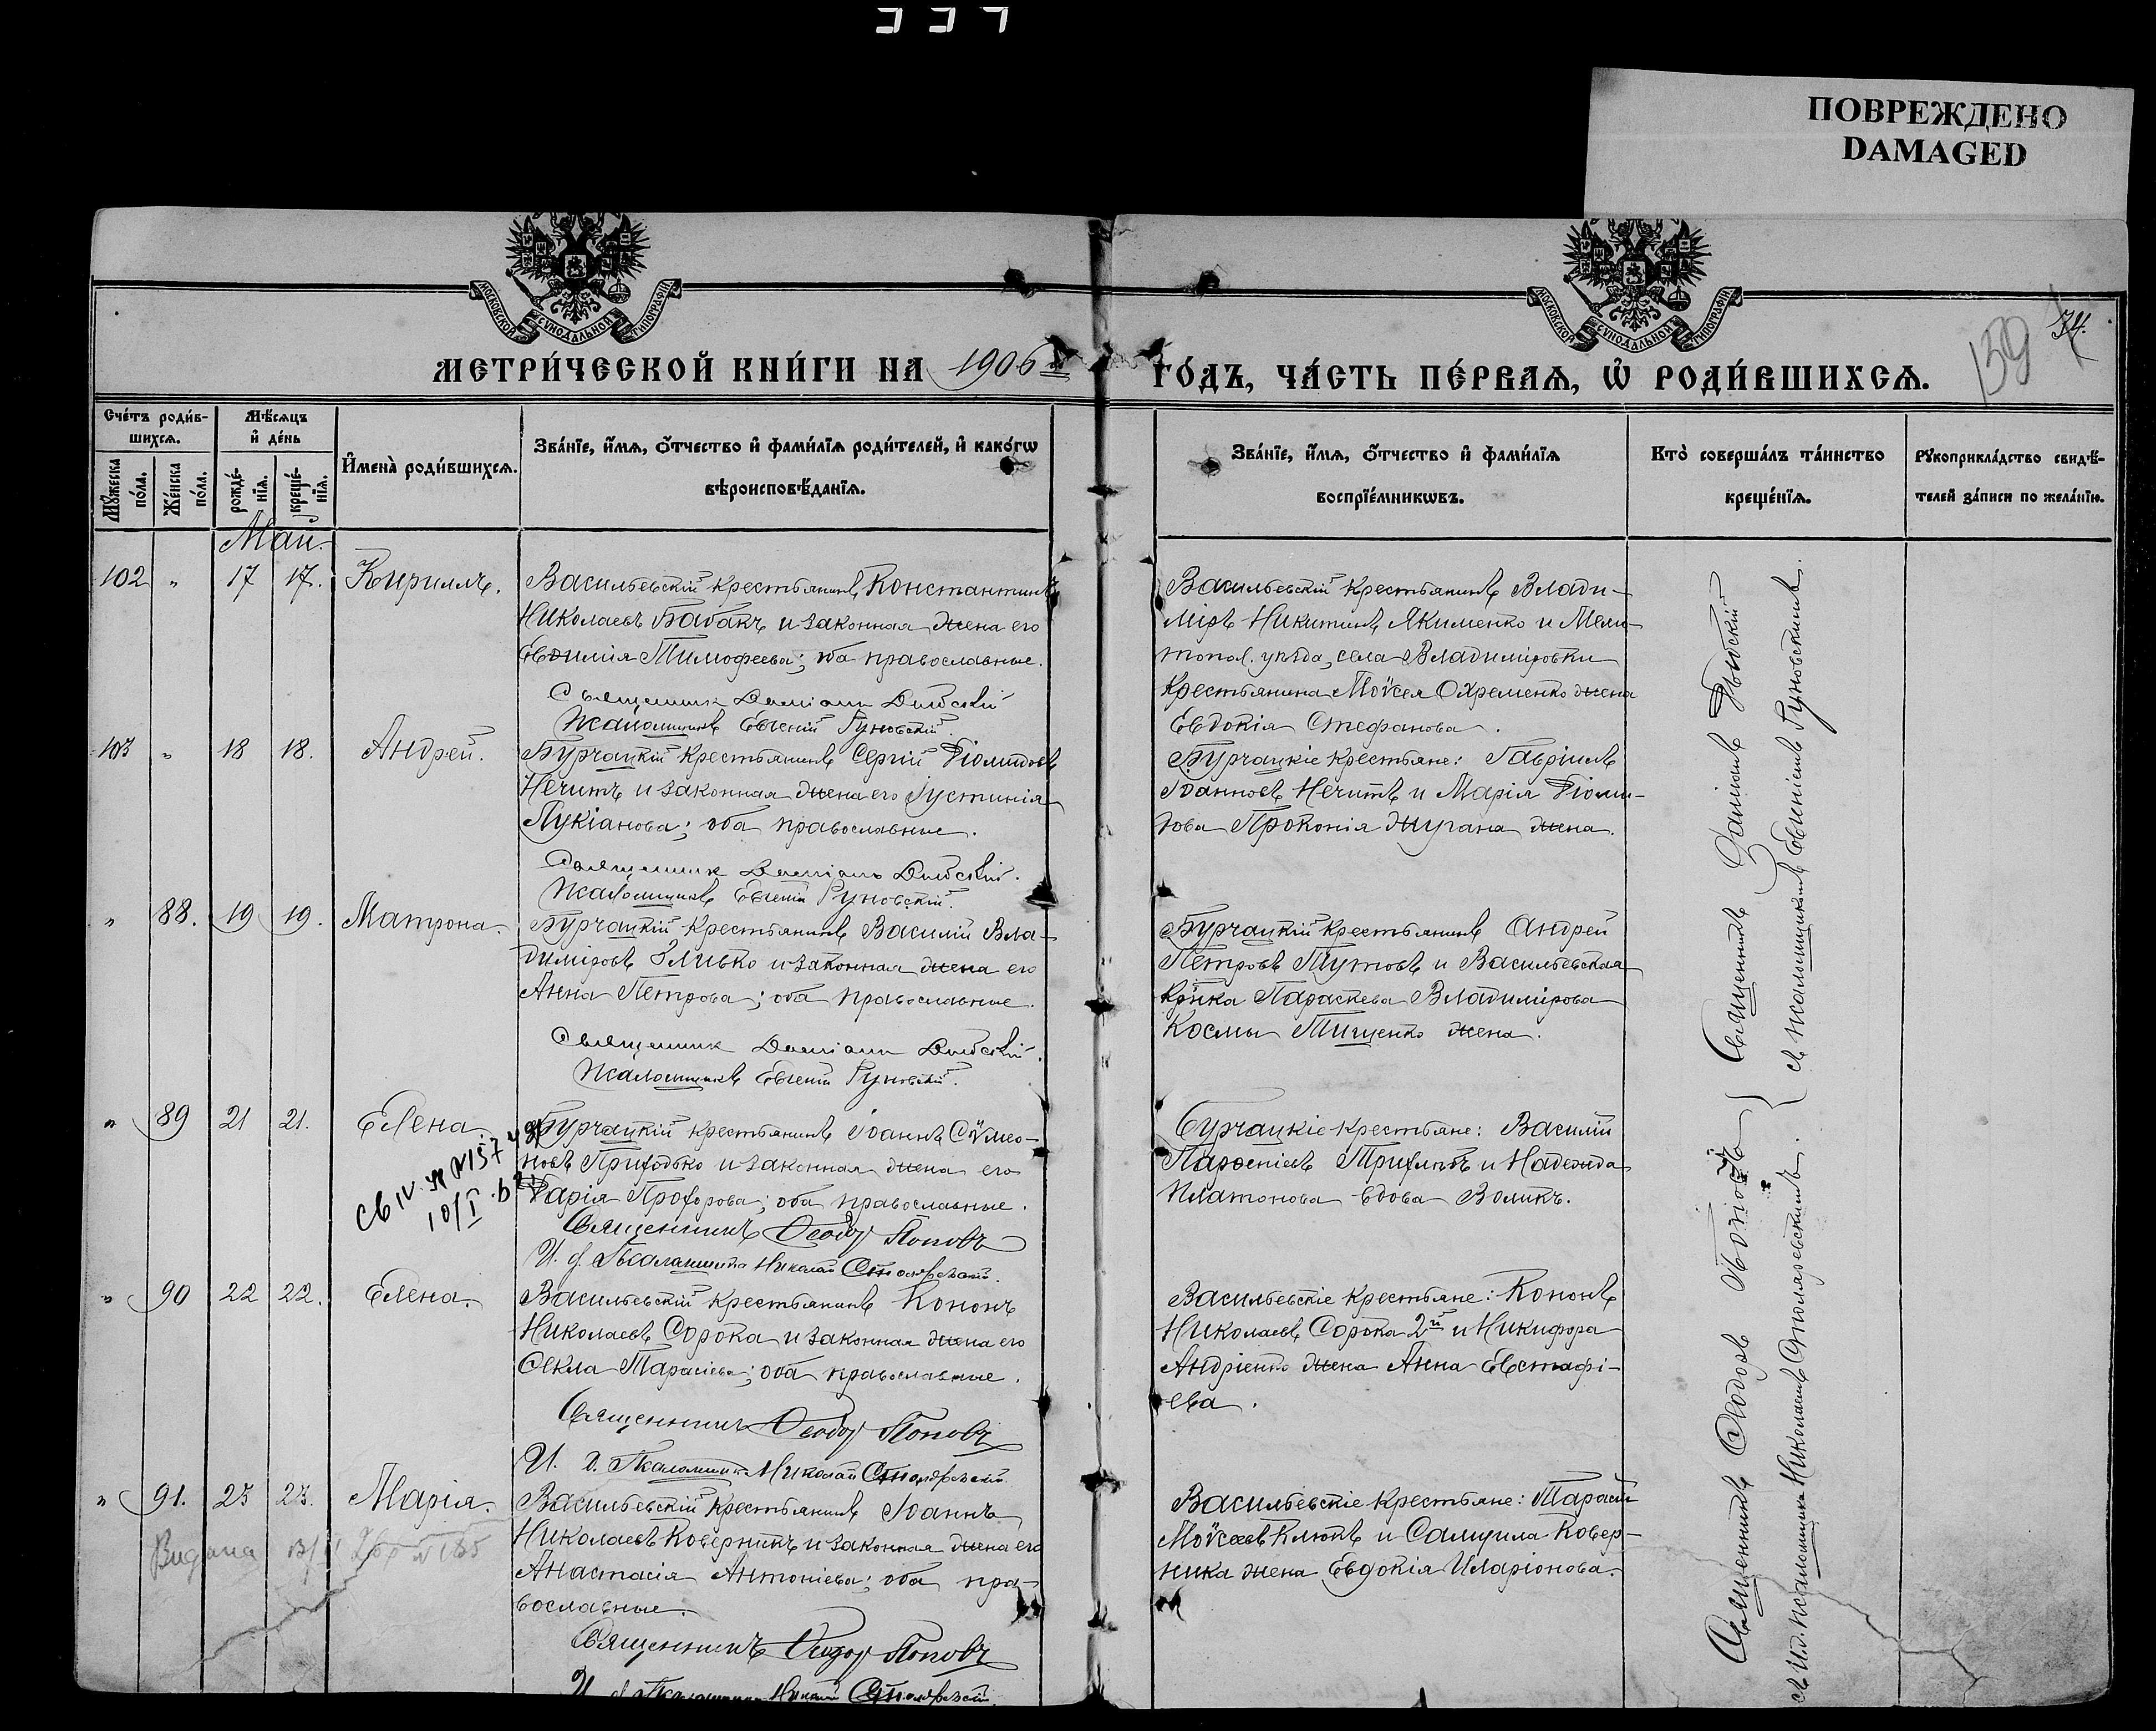 ПОВРЕЖДЕНО
DAMAGED
МОСКОВСКОЙ СѴНОДАЛЬНОЙ ТИПОГРАФІИ
МОСКОВСКОЙ СѴНОДАЛЬНОЙ ТИПОГРАФІИ
139 74.
МЕТРИ́ЧЕСКОЙ КНИ́ГИ НА 1906 й ГО́ДЪ, ЧА́СТЬ ПЕ́РВАѦ, Ѡ РОДИ́ВШИХСѦ.
Сче́тъ роди́в-
шихсѧ.
Мѣ́сѧцъ
и де́нь
Мꙋ́жеска
по́ла.
Же́нска
по́ла.
рожде́-
нїѧ.
креще́-
нїѧ.
И҆мена̀ роди́вшихсѧ.
Зва́нїе, и҆́мѧ, ѻ҆́тчество и҆ фами́лїѧ роди́телей, и҆ како́гѡ
вѣроисповѣ́данїѧ.
Зва́нїе, и҆́мѧ, ѻ҆́тчество и҆ фами́лїѧ
воспрїе́мникѡвъ.
Кто̀ соверша́лъ та́инство
креще́нїѧ.
Рꙋкоприкла́дство свидѣ́-
телей за́писи по жела́нїю.
Май.
102 " 17 17. Кириллъ.
Васильевскій крестьянинъ Константинъ
Николаевъ Бабакъ и законная жена его
Евфимія Тимофеева; оба православные.
Священникъ Даміанъ Дубскій
Псаломщикъ Евгеній Руновскій.
Васильевскій крестьянинъ Влади-
міръ Никитинъ Якименко и Мели-
топол. уѣзда, села Владиміровки
крестьянина Моѵсея Охременко жена
Евдокія Стефанова.
103 " 18 18. Андрей.
Бурчацкій крестьянинъ Сергій Діомидовъ
Нечитъ и законная жена его Іустинія
Лукіанова; оба православные.
Священникъ Даміанъ Дубскій.
Псаломщикъ Евгеній Руновскій.
Бурчацкіе крестьяне: Гавріилъ
Іоанновъ Нечитъ и Марія Діоми-
дова Прокопія Жугана жена.
" 88. 19 19. Матрона.
Бурчацкій крестьянинъ Василій Вла-
диміровъ Гливко и законная жена его
Анна Петрова; оба православные.
Священникъ Даміанъ Дубскій.
Псаломщикъ Евгеній Руновскій.
Бурчацкій крестьянинъ Андрей
Петровъ Тутовъ и Васильевская
кр-нка Параскева Владимірова
Космы Тищенко жена.
" 89 21 21. Елена
Св IV
10/I
Бурчацкій крестьянинъ Іоаннъ Сѵмео-
новъ Приходько и законная жена его
Дарія Прохорова; оба православные.
Священникъ Ѳеодоръ Поповъ
И. д. Псаломщика Николай Столяревскій.
Бурчацкіе крестьяне: Василій
Парѳеніевъ Трифловъ и Надежда
Платонова вдова Воликъ.
" 90 22 22. Елена.
Васильевскій крестьянинъ Кононъ
Николаевъ Сорока и законная жена его
Ѳекла Тарасіева; оба православные.
Священникъ Ѳеодоръ Поповъ
И. д. Псаломщика Николай Столяревскій.
Васильевскіе крестьяне: Кононъ
Николаевъ Сорока 2й и Никифора
Андріенко жена Анна Евстафі-
ева.
" 91. 23 23. Марія.
Видана
Васильевскій крестьянинъ Іоаннъ
Николаевъ Коверникъ и законная жена его
Анастасія Антоніева; оба пра-
вославные.
Священникъ Ѳеодоръ Поповъ
И. д. Псаломщика Николай Столяревскій.
Васильевскіе крестьяне: Тарасій
Моѵсеевъ Клюкъ и Самуила Ковер-
ника жена Евдокія Иларіонова.
Священникъ Даміанъ Дубскій
съ псаломщикомъ Евгеніемъ Руновскимъ.
Священникъ Ѳеодоръ Поповъ
съ и.д. псаломщика Николаемъ Столяревскимъ.